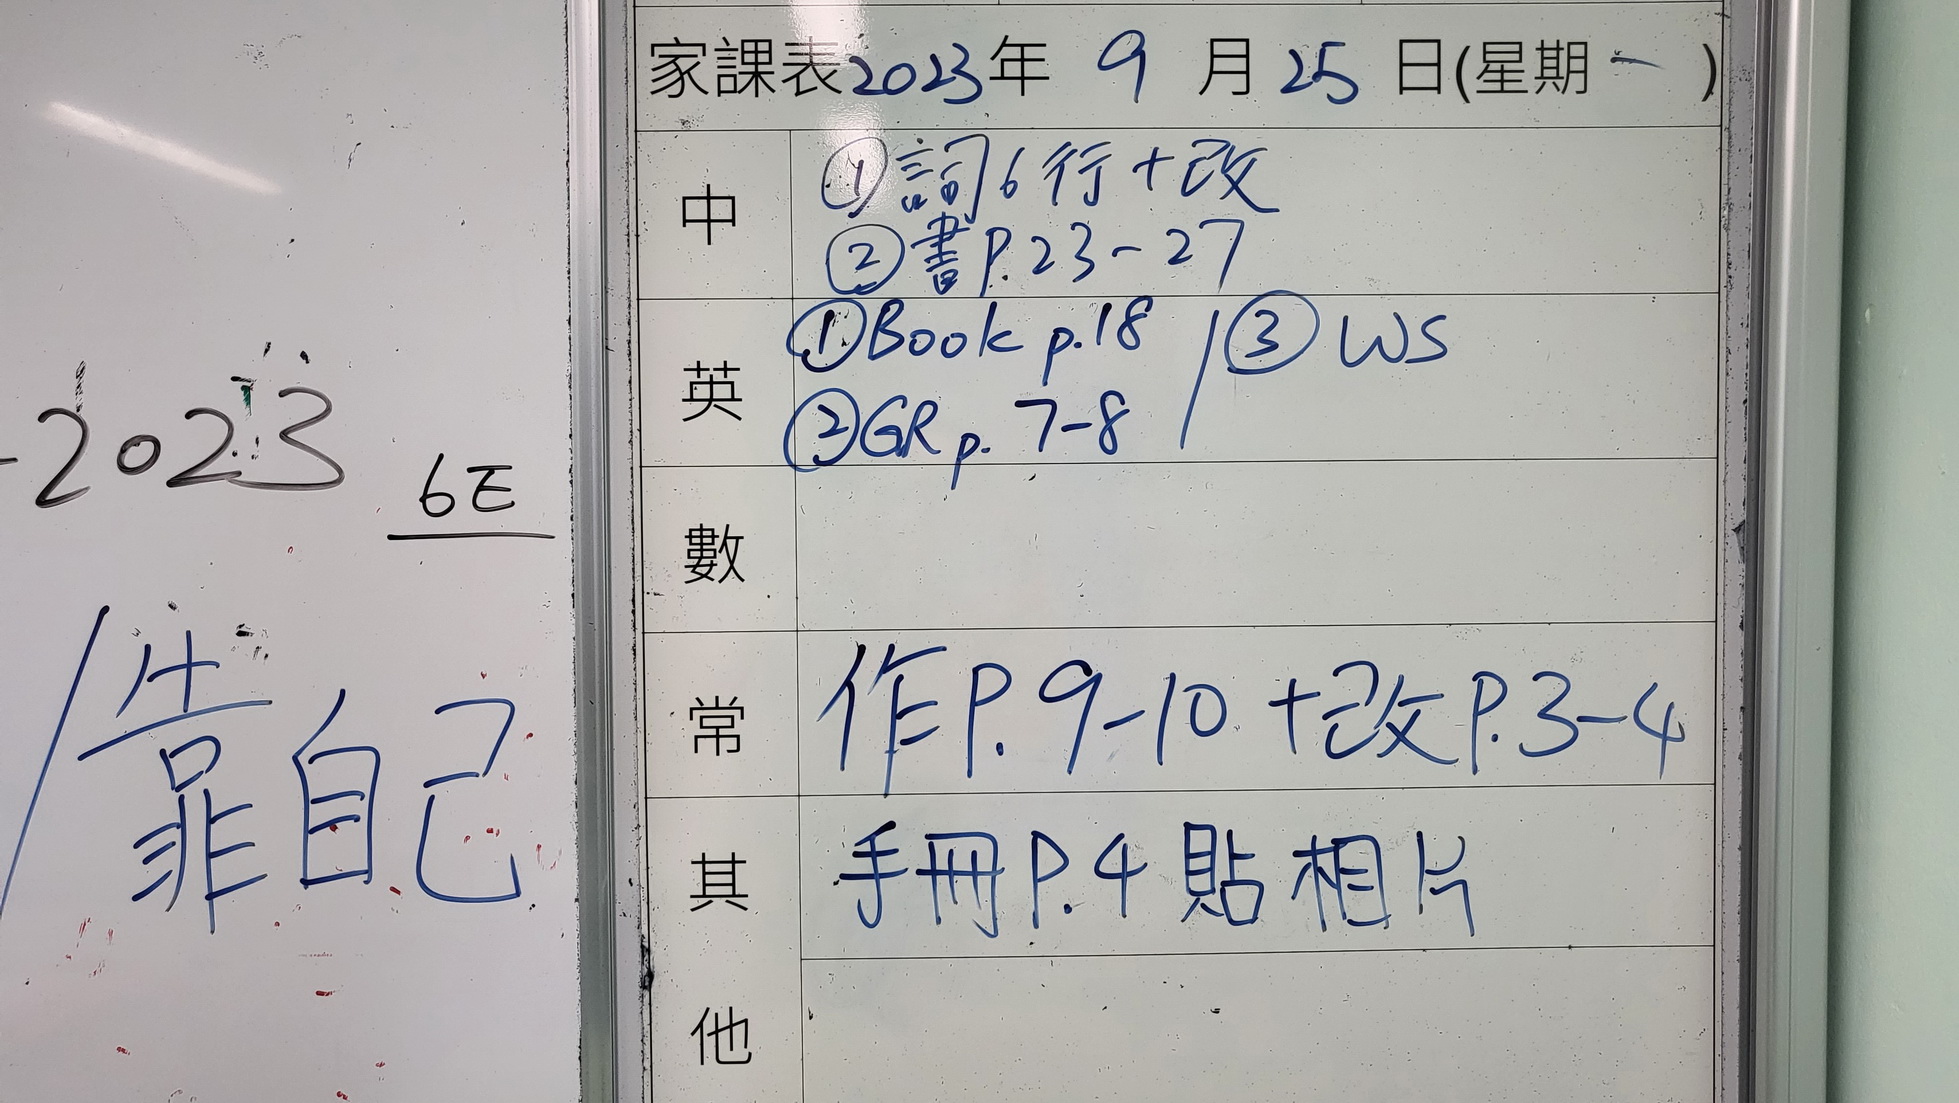 -2023
6E
/靠自己
家課表2023年 9 月 25 日(星期一 )
中
①詞6行+改
②書P.23-27
英
①Book p.18 / ③ WS
②GR p. 7-8
數
常
作P.9-10+改P.3-4
其他
手冊P.4 貼相片